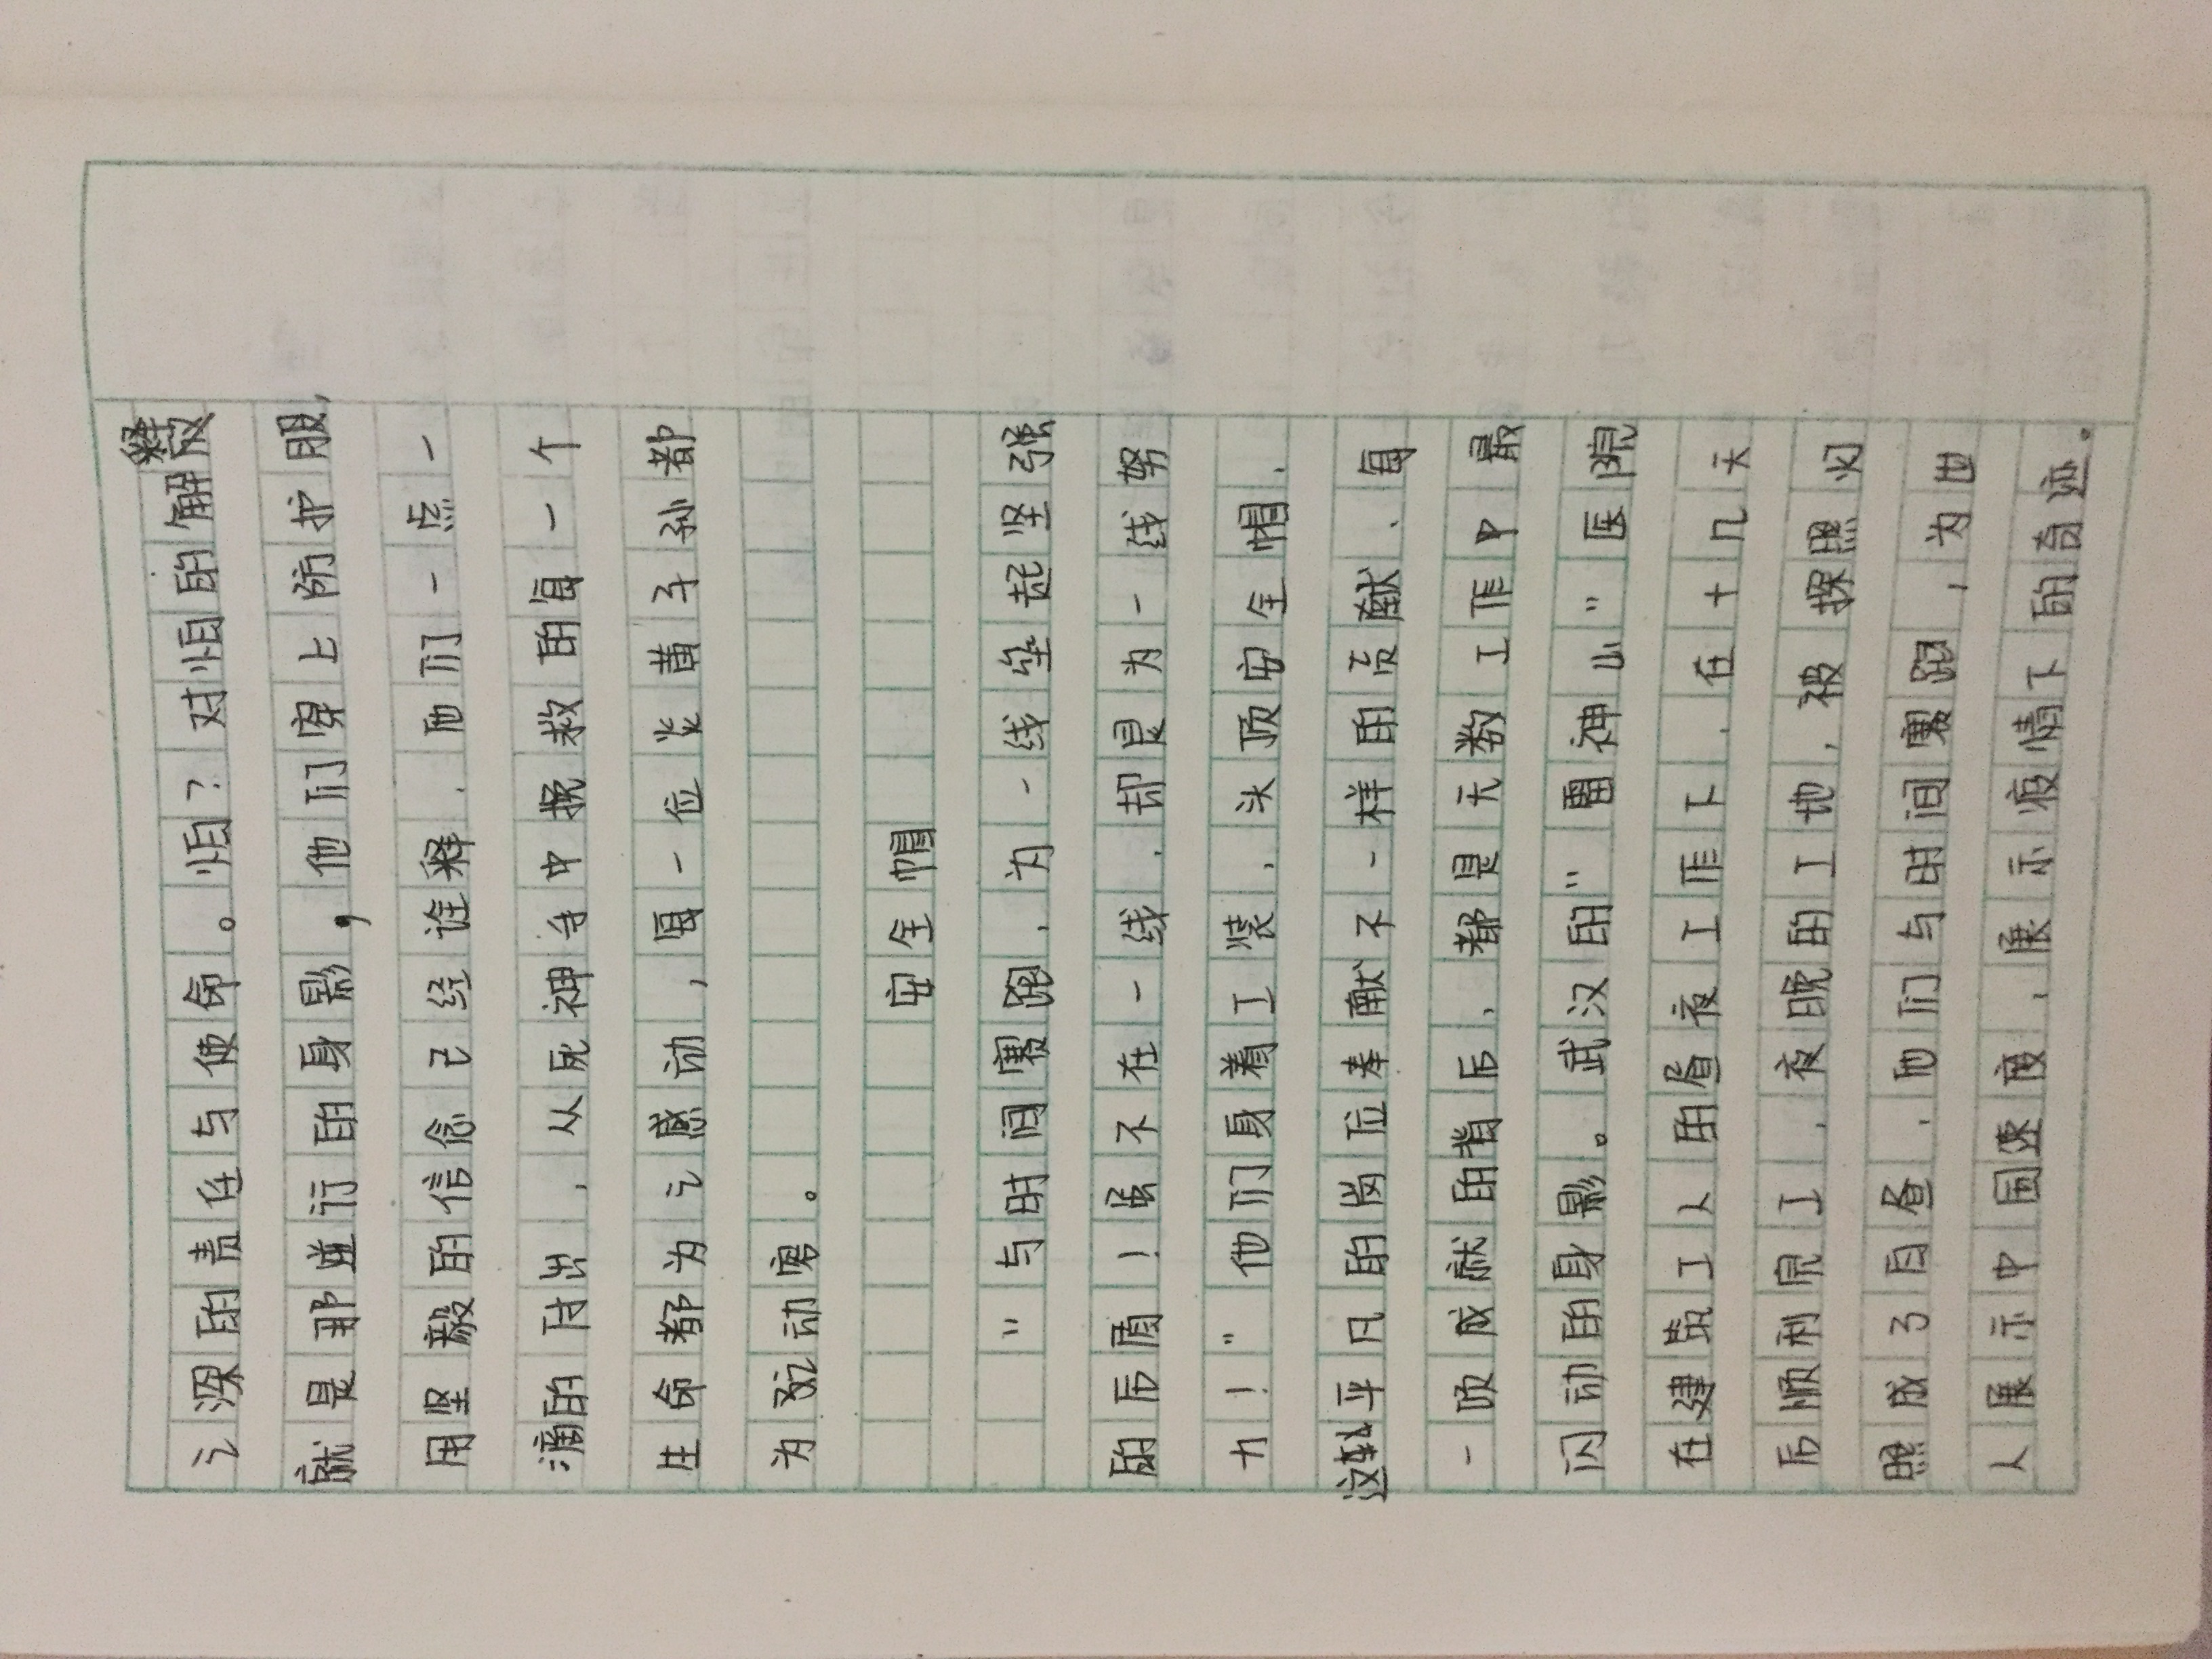 之深的责任与使命。怕?对怕的解释
就是那逆行的身影,他们穿上防护服,
用坚毅的信念已经诠释,他们一点一
滴的付出,从死神手中挽救的每一个
生命都为之感动,每一位炎黄子孙都
为之动容。
安全帽
"与时间赛跑,为一线垒起坚强
的后盾!虽不在一线,却是为一线努
力!"他们身着工装,头顶安全帽,
平凡的岗位奉献不一样的贡献,每
一项成就的背后,都是无数工作中最
闪动的身影。武汉的"雷神山"医院
在建筑工人的昼夜工作下,在十几天
后顺利完工,夜晚的工地,被探照灯
照成了白昼,他们与时间赛跑,为世
人展示中国速度,展示疫情下的奇迹。